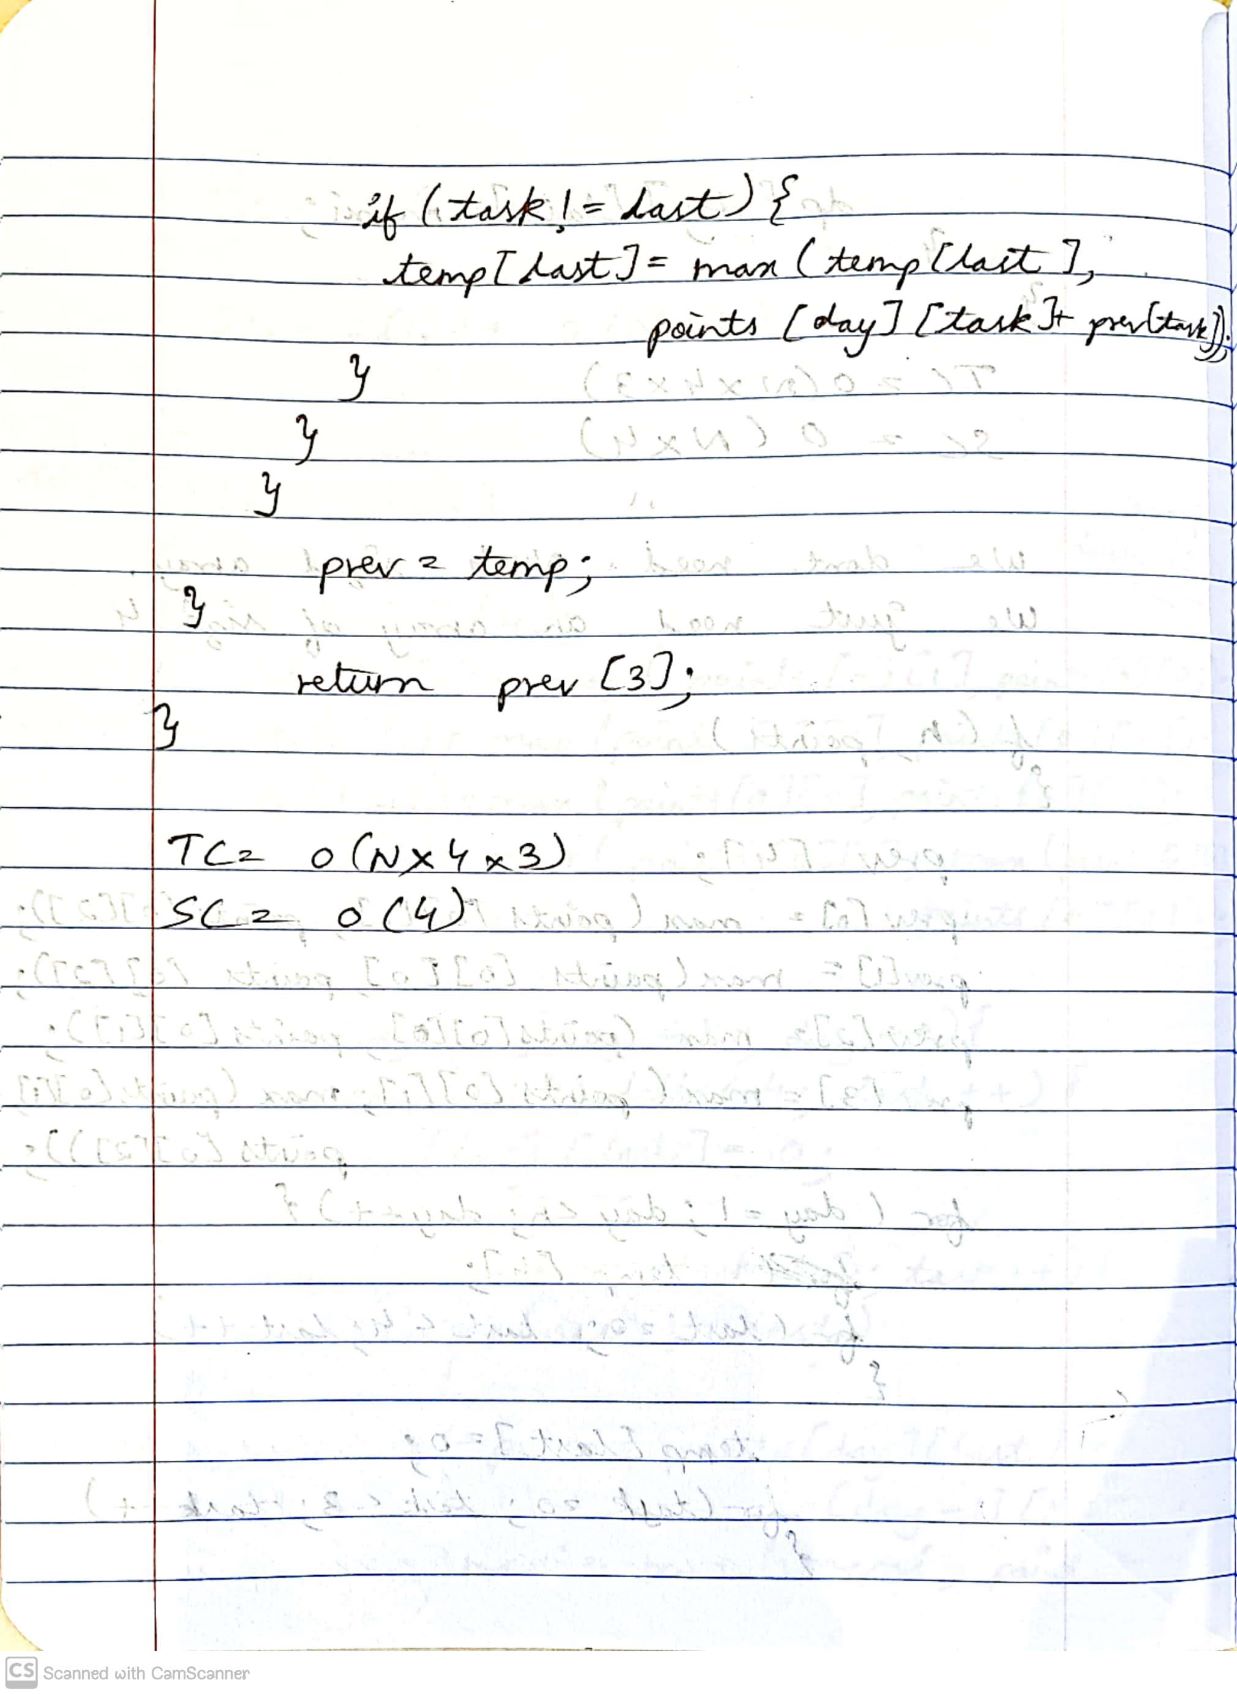 if (task != last) {
temp[last] = max (temp[last],
points [day] [task] + prev[task]);
}
}
}
prev = temp;
}
return prev [3];
}
TC = O (N x 4 x 3)
SC = O (4)
CS Scanned with CamScanner